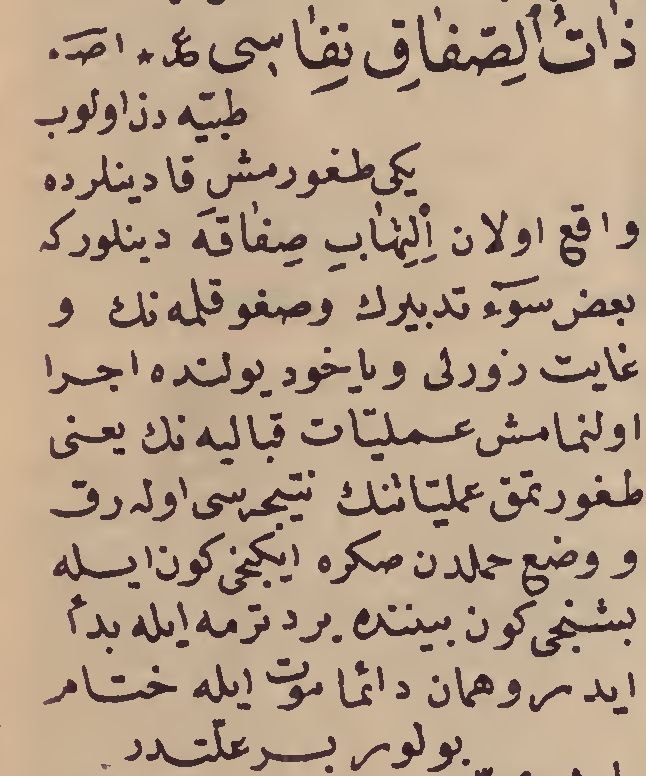 ذَاتُ الصِّفَاقِ نِفَاسِى ع * اصـ.
طبيّه دن اولوب
يكى طغورمش قادينلرده
واقع اولان اِلتِهَابِ صِفَاقَه دينلوركه
بعض سوۤء تدبيرك وصغوقلمه نك و
غايت زورلى وياخود يولنده اجرا
اولنمامش عمليّات قباليه نك يعنى
طغورتمق عمليّاتنك نتيجه سى اوله رق
و وضع حملدن صكره ايكنجى كون ايله
بشنجى كون بيننده بر دترمه ايله بدأ
ايدر وهمان دائما موت ايله ختام
بولور بر علّتدر